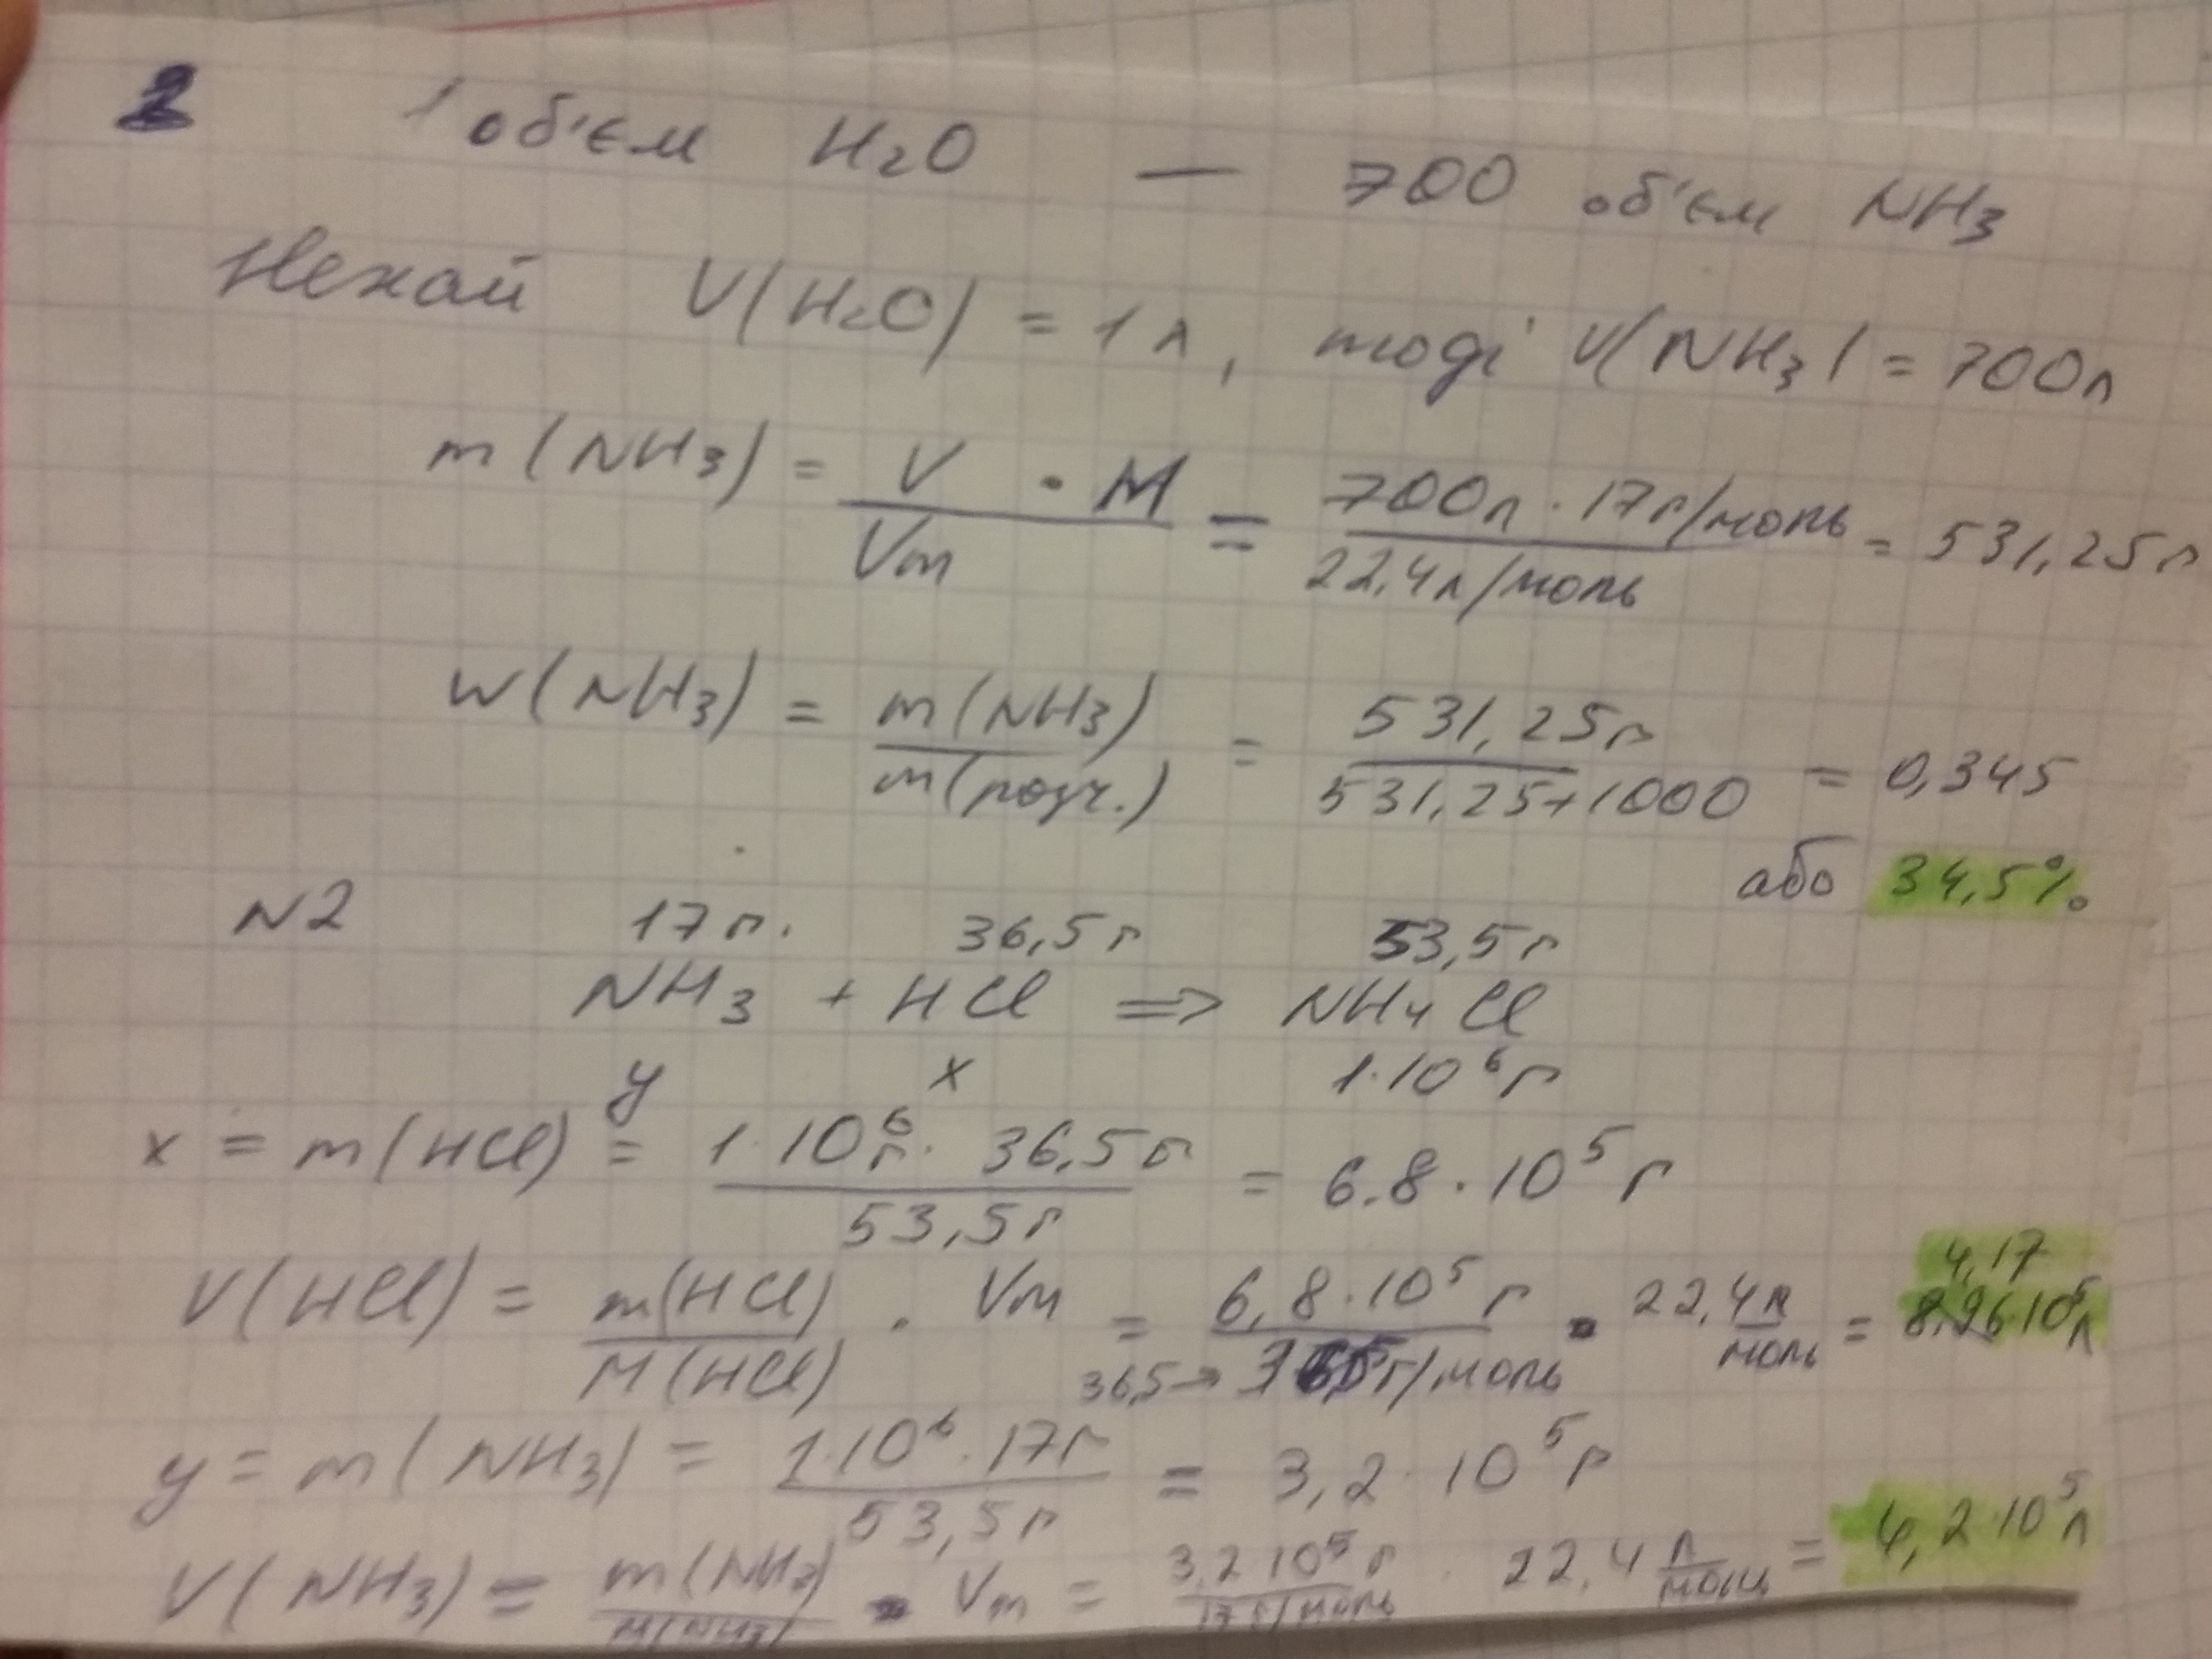 2 1 об'єм H₂O — 700 об'єм NH₃
Нехай V(H₂O) = 1 л, тоді V(NH₃) = 700л
m(NH₃) = V/Vm · M = 700л · 17г/моль / 22,4л/моль = 531,25г
w(NH₃) = m(NH₃)/m(розч.) = 531,25г / 531,25+1000 = 0,345
або 34,5%
N2 17г. 36,5г 53,5г
NH₃ + HCl => NH₄Cl
y x 1·10⁶г
x = m(HCl) = 1·10⁶г · 36,5г / 53,5г = 6.8·10⁵г
4,17
V(HCl) = m(HCl)/M(HCl) · Vm = 6,8·10⁵г / 36,5г/моль · 22,4 л/моль = 8,26·10⁵л
36,5→
y = m(NH₃) = 1·10⁶·17г / 53,5г = 3,2·10⁵г
V(NH₃) = m(NH₃)/M(NH₃) · Vm = 3,2·10⁵г / 17г/моль · 22,4 л/моль = 4,2·10⁵л